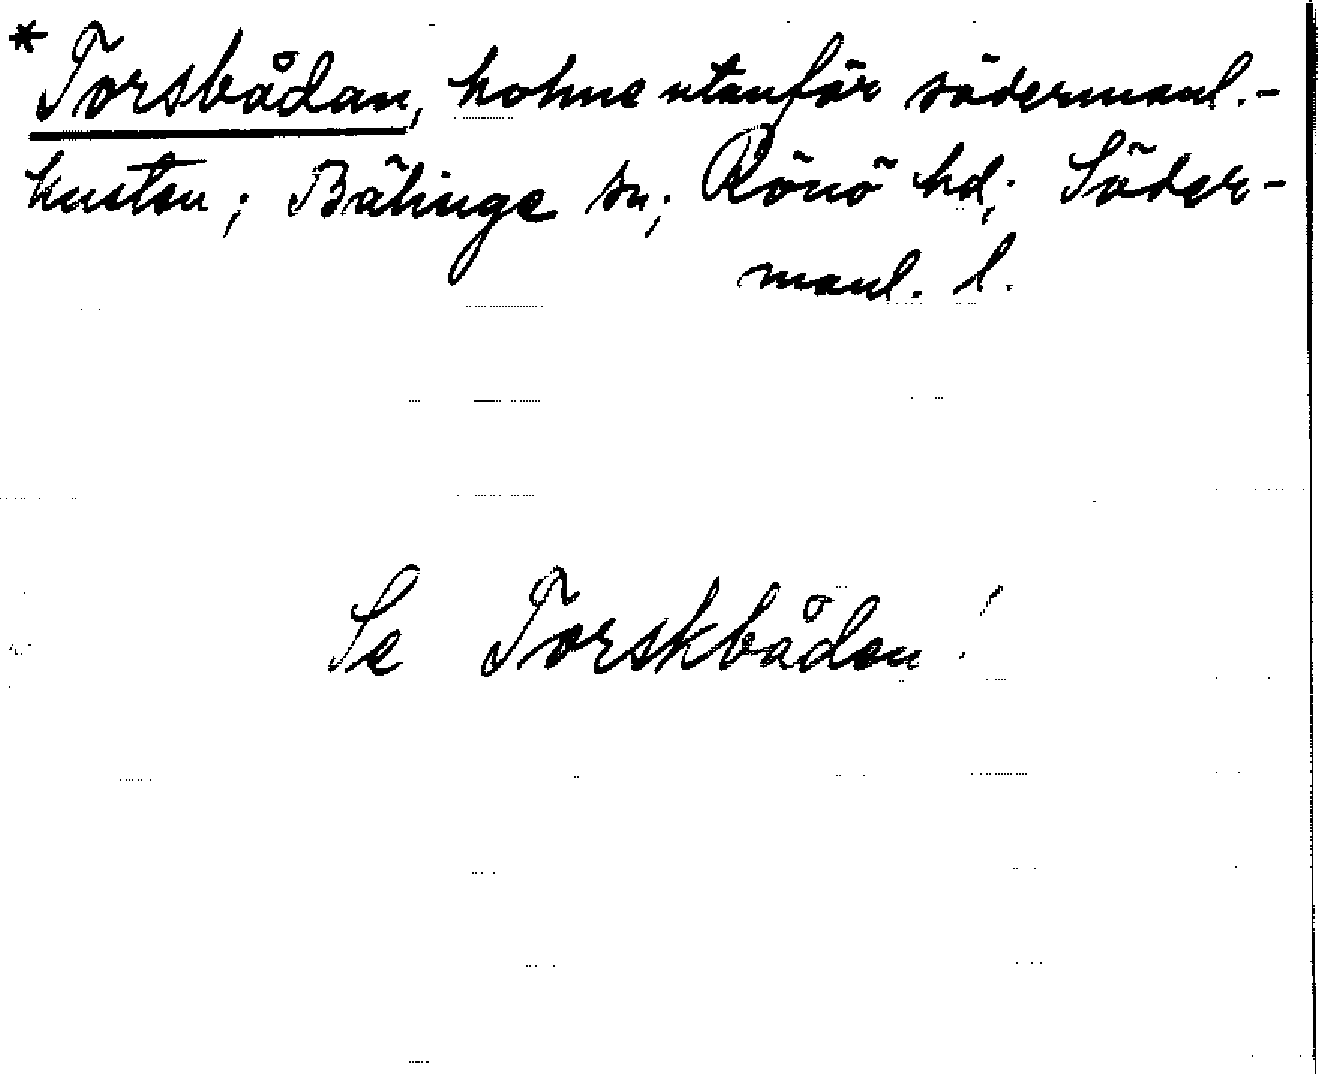 *Torsbådan, holme utanför södermanl.-
kusten; Bälinge sn; Rönö hd; Söder-
manl. l.
Se Torskbådan!